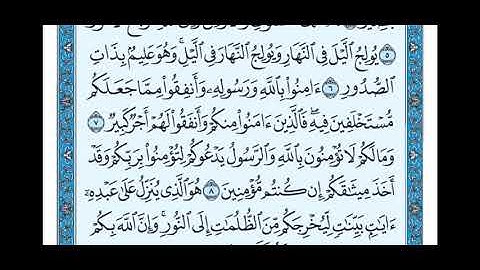 ٥ يُولِجُ ٱلَّيْلَ فِى ٱلنَّهَارِ وَيُولِجُ ٱلنَّهَارَ فِى ٱلَّيْلِ ۚ وَهُوَ عَلِيمُۢ بِذَاتِ
ٱلصُّدُورِ ٦ ءَامِنُوا۟ بِٱللَّهِ وَرَسُولِهِۦ وَأَنفِقُوا۟ مِمَّا جَعَلَكُم
مُّسْتَخْلَفِينَ فِيهِ ۖ فَٱلَّذِينَ ءَامَنُوا۟ مِنكُمْ وَأَنفَقُوا۟ لَهُمْ أَجْرٌ كَبِيرٌ ٧
وَمَا لَكُمْ لَا تُؤْمِنُونَ بِٱللَّهِ ۙ وَٱلرَّسُولُ يَدْعُوكُمْ لِتُؤْمِنُوا۟ بِرَبِّكُمْ وَقَدْ
أَخَذَ مِيثَٰقَكُمْ إِن كُنتُم مُّؤْمِنِينَ ٨ هُوَ ٱلَّذِى يُنَزِّلُ عَلَىٰ عَبْدِهِۦٓ
ءَايَٰتٍۭ بَيِّنَٰتٍ لِّيُخْرِجَكُم مِّنَ ٱلظُّلُمَٰتِ إِلَى ٱلنُّورِ ۚ وَإِنَّ ٱللَّهَ بِكُمْ